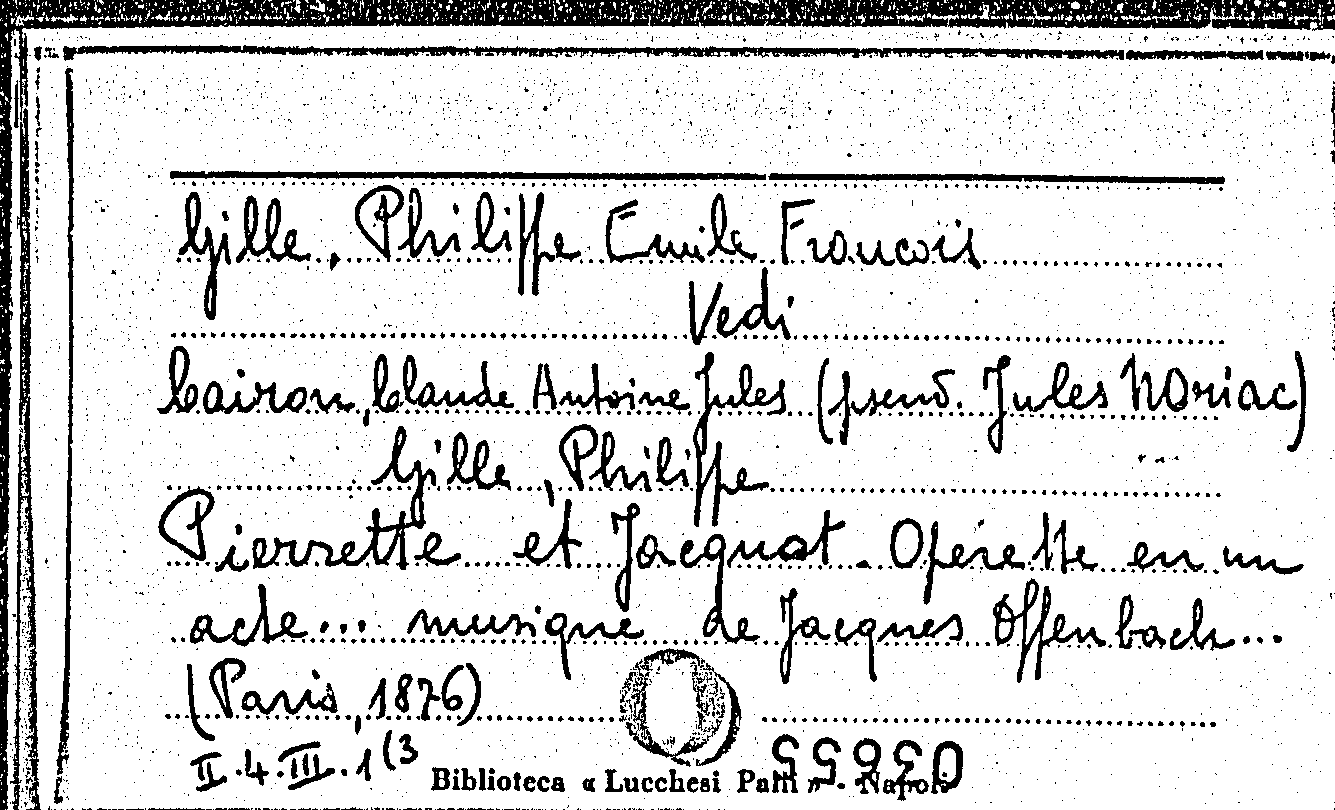 Gille, Philippe Emile Francois
Vedi
Cairon, Claude Antoine Jules (pseud. Jules Noriac)
Gille, Philippe
Pierrette et Jacquot. Opérette en un
acte... musique de Jacques Offenbach...
(Paris, 1876)
II.4.III.1(3
Biblioteca « Lucchesi Palli » - Napoli